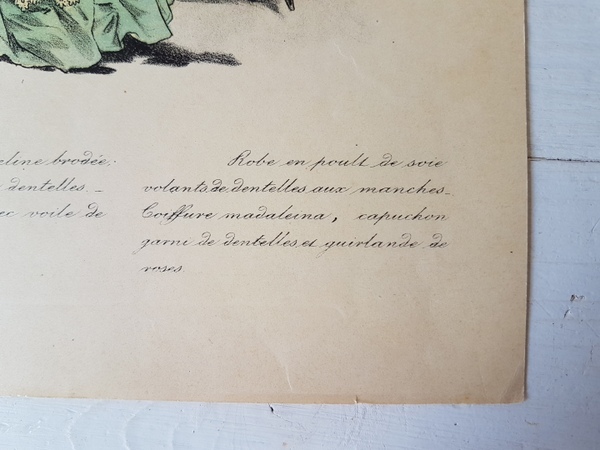 eline brodée:
dentelles _
ec voile de
Robe en poult de soie
volants de dentelles aux manches_
Coiffure madaleina, capuchon
garni de dentelles et guirlande de
roses.